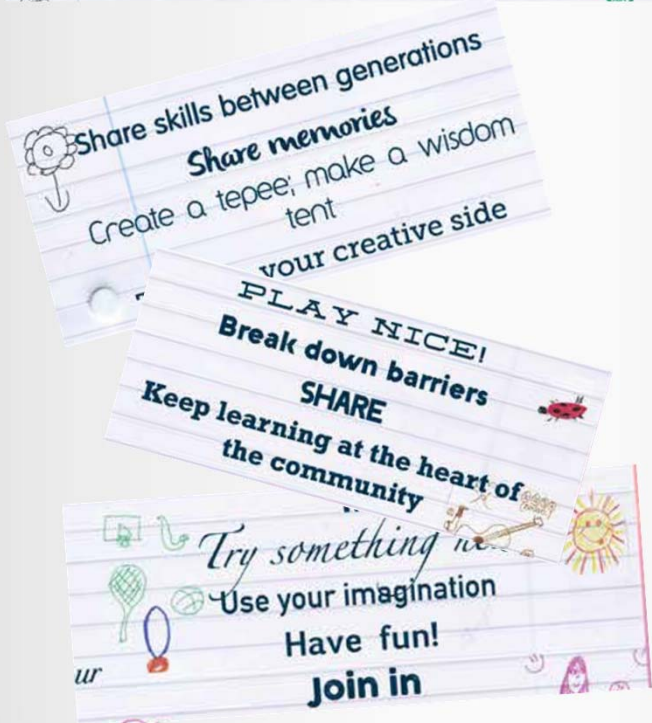 Share skills between generations
Share memories
Create a tepee; make a wisdom
tent
your creative side
PLAY NICE!
Break down barriers
SHARE
Keep learning at the heart of
the community
Try something
Use your imagination
Have fun!
ur
Join in